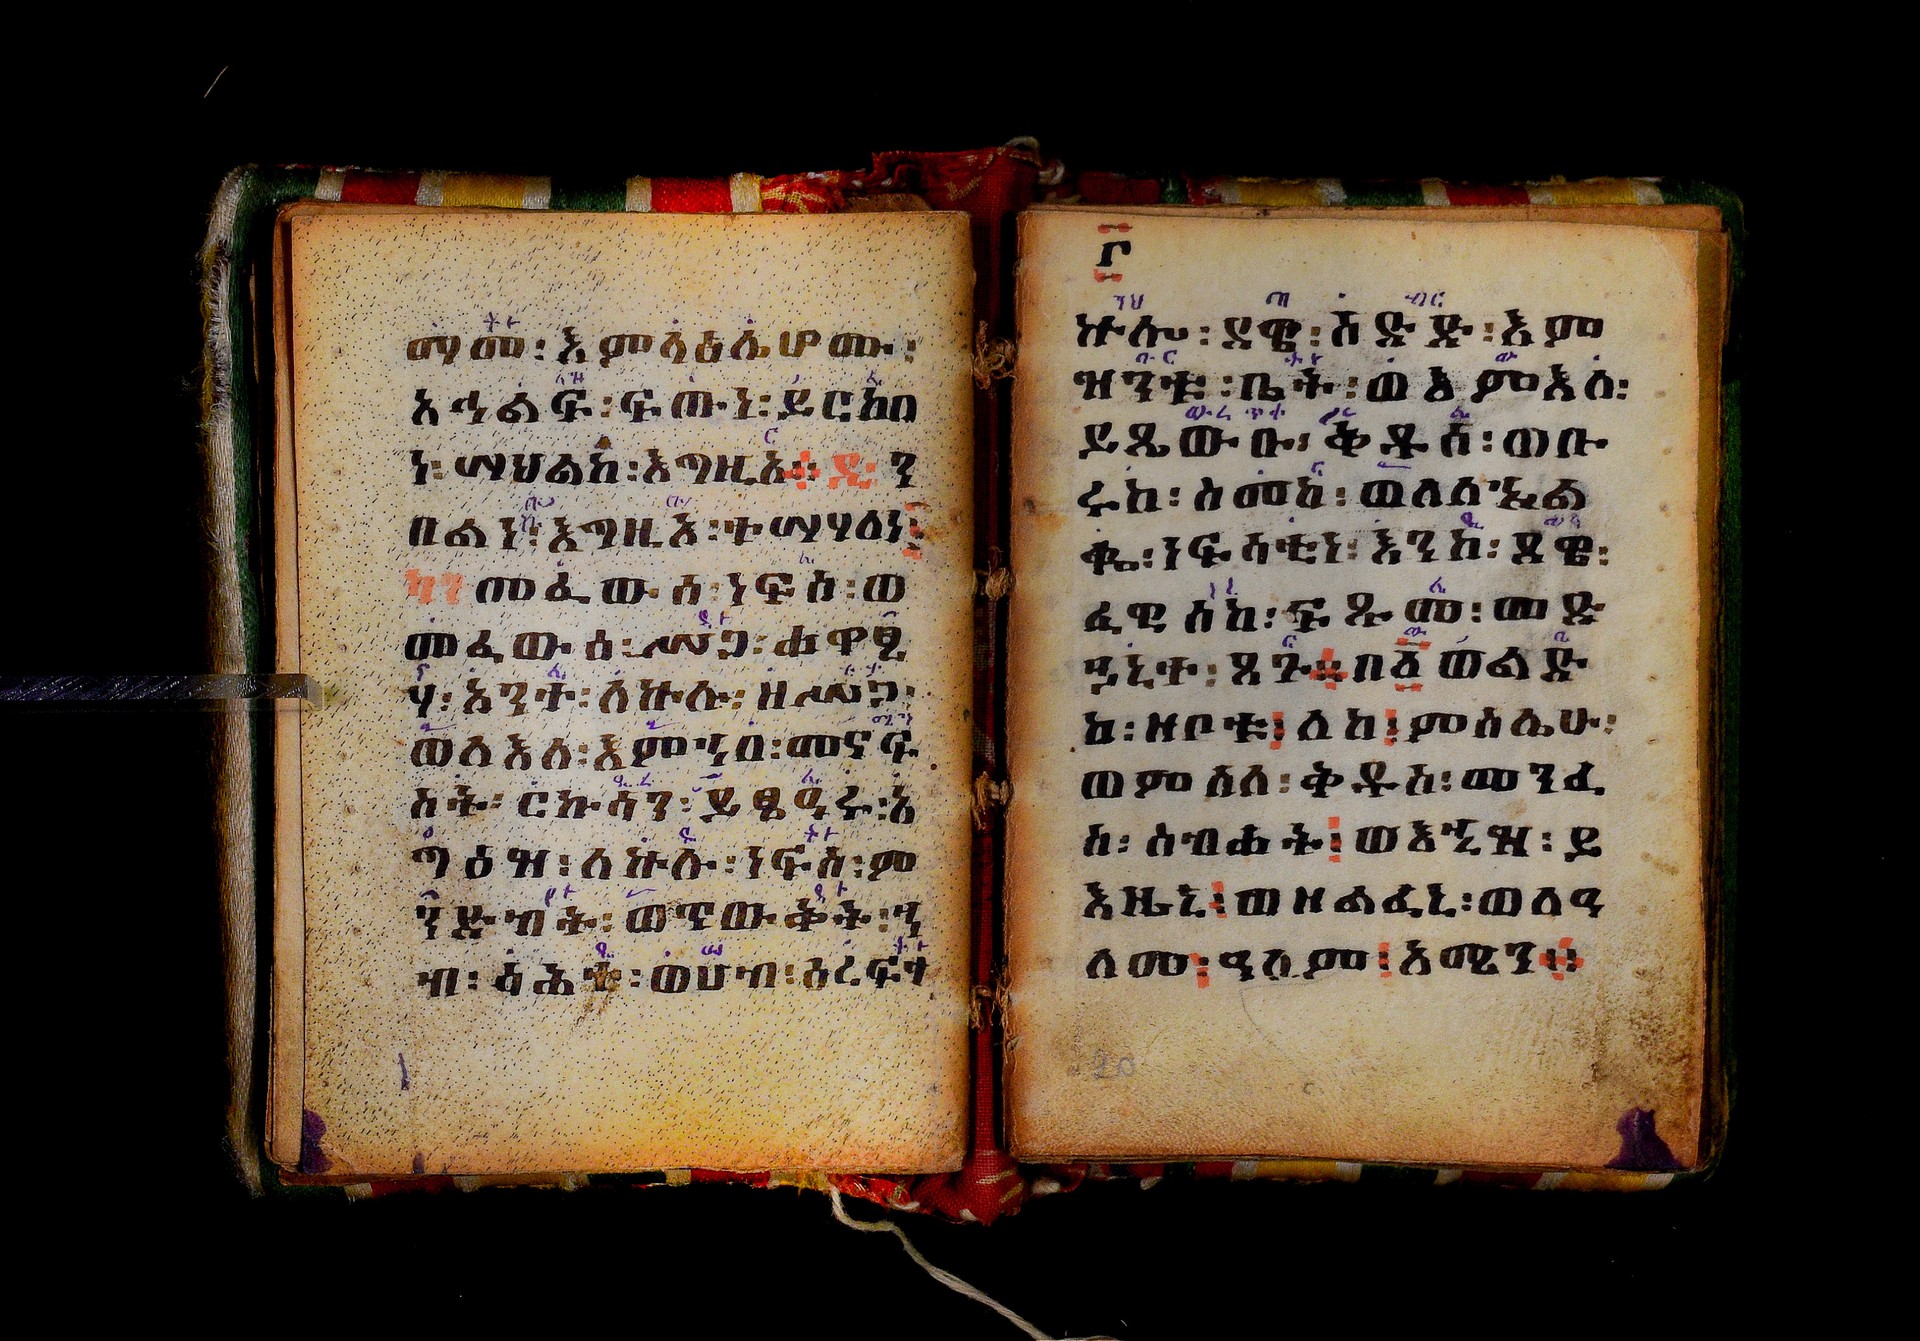 ማመ፡እምላዕሌሆሙ፡
አኃልፍ፡ፍጡነ፡ይርከበ
ነ፡ሣህልከ፡እግዚኦ። ዲ፡ ን
በልነ፡እግዚእ፡ተሣሃለነ፡
መፈውሰ፡ነፍስ፡ወ
መፈውሰ፡ሥጋ፡ሐዋፂ
ሃ፡አንተ፡ለኵሉ፡ዘሥጋ፡
ወለእለ፡እምኀበ፡መናፍ
ስት፡ርኩሳን፡ይፄዓሩ፡አ
ግዕዝ፡ለኵሉ፡ነፍስ፡ም
ንድብት፡ወጥውቅት፡ኀ
ብ፡ሳሕተ፡ወሀብ፡ዕረፍተ
፫
ኵሎ፡ደዌ፡ስድድ፡እም
ዝንቱ፡ቤት፡ወእምእለ፡
ይጼውዑ፡ቅዱስ፡ወቡ
ሩከ፡ስመከ፡ወለለኄል
ቄ፡ነፍሳቲነ፡እንከ፡ጸዌ፡
ፈዊሰከ፡ፍጹመ፡መድ
ኃኒተ፡ጸጉ። በ፩ወልድ
ከ፡ዘቦቱ፡ለከ፡ምስሌሁ፡
ወምስለ፡ቅዱስ፡መንፈ
ስ፡ስብሐት፡ወእኂዝ፡ይ
እዜኒ፡ወዘልፈኒ፡ወለዓ
ለመ፡ዓለም፡አሜን።
20